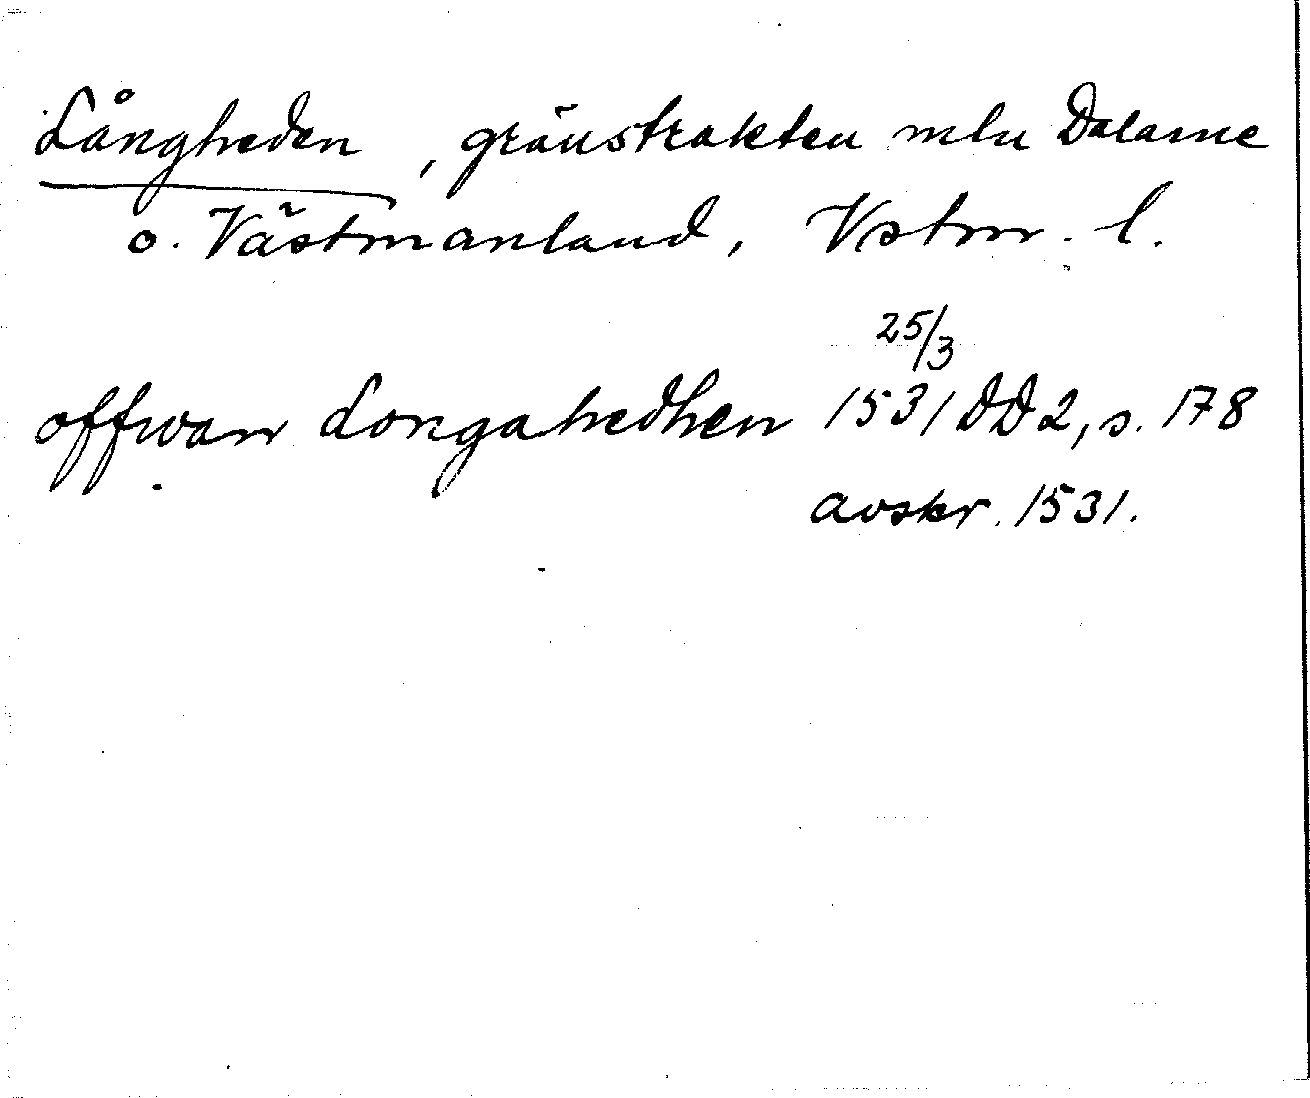 Långheden, gränstrakten mln Dalarne
o. Västmanland, Vstm. l.
offwan Longahedhen 25/3 1531 DD 2, s. 178
avskr. 1531.